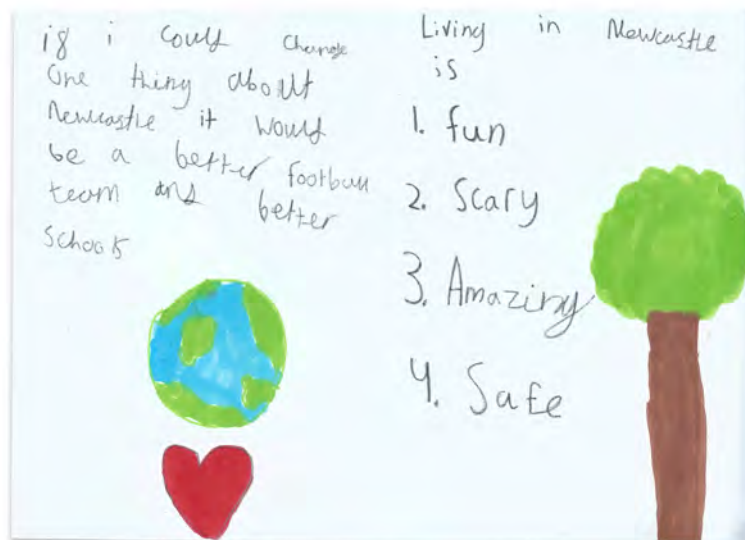 if i could change
one thing about
Newcastle it would
be a better football
team and better
schools
Living in Newcastle
is
1. fun
2. Scary
3. Amazing
4. Safe